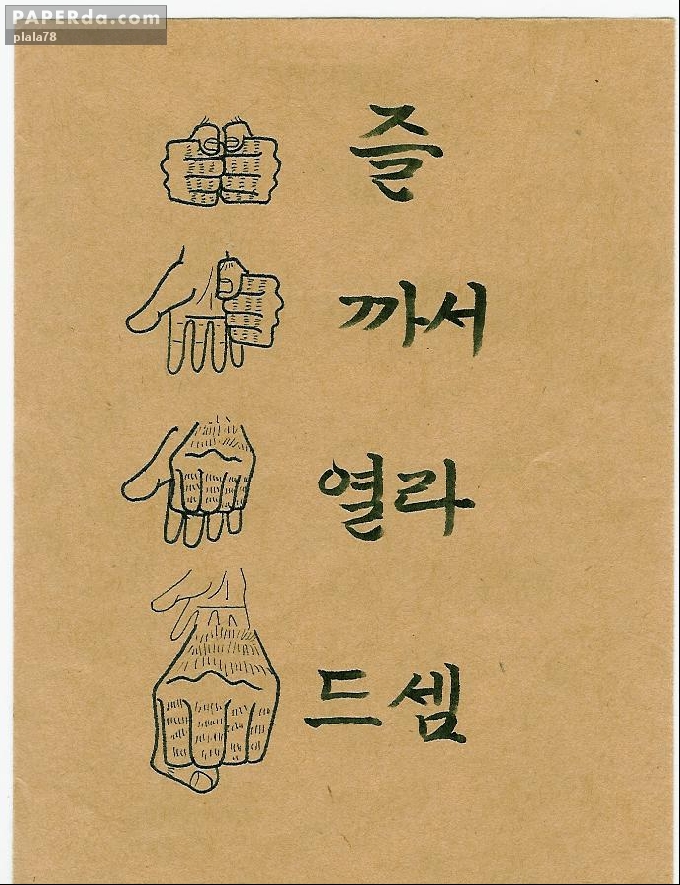 PAPERda.com
plala78
즐
까서
열라
드셈